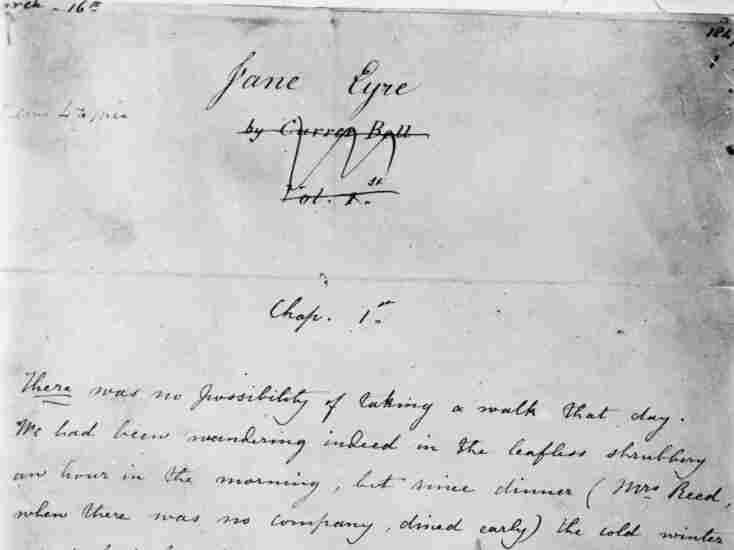 16th
184
Jane Eyre
by Currer Bell
Vol. 1.st
Chap. 1.st
There was no possibility of taking a walk that day.
We had been wandering indeed in the leafless shrubbery
an hour in the morning, but since dinner (Mrs Reed,
when there was no company, dined early) the cold winter